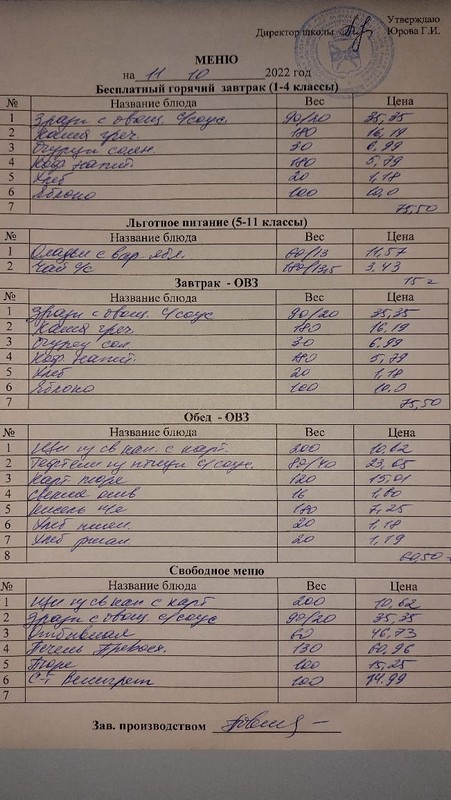 Утверждаю
Директор школы Юрова Г.И.
МЕНЮ
на 11 10 2022 год
Бесплатный горячий завтрак (1-4 классы)
№ Название блюда Вес Цена
1 Зразы с овощ. с/соус. 90/20 35,35
2 Каша греч. 180 16,19
3 Огурец солен. 30 6,99
4 Коф. напит. 180 5,79
5 Хлеб 20 1,18
6 Яблоко 100 10,0
7 75,50
Льготное питание (5-11 классы)
№ Название блюда Вес Цена
1 Оладьи с вар. ябл. 60/13 11,57
2 Чай 180/13,5 3,43
15
Завтрак - ОВЗ
№ Название блюда Вес Цена
1 Зразы с овощ. с/соус 90/20 35,35
2 Каша греч. 180 16,19
3 Огурец сол. 30 6,99
4 Коф. напит. 180 5,79
5 Хлеб 20 1,18
6 Яблоко 100 10.0
7 75,50
Обед - ОВЗ
№ Название блюда Вес Цена
1 Щи из св кап. с карт. 200 10,62
2 Тефтели из птицы с/соус. 80/40 23,65
3 Карт пюре 120 15,01
4 16 1,60
5 Кисель 180 7,25
6 Хлеб пшен. 20 1,18
7 Хлеб ржан. 20 1,19
8 60,50
Свободное меню
№ Название блюда Вес Цена
1 Щи из св кап с карт 200 10,62
2 Зразы с овощ с/соус 90/20 35,35
3 60 46,73
4 Печень 130 60,96
5 Пюре 100 15,25
6 Винегрет 100 14.99
7
Зав. производством